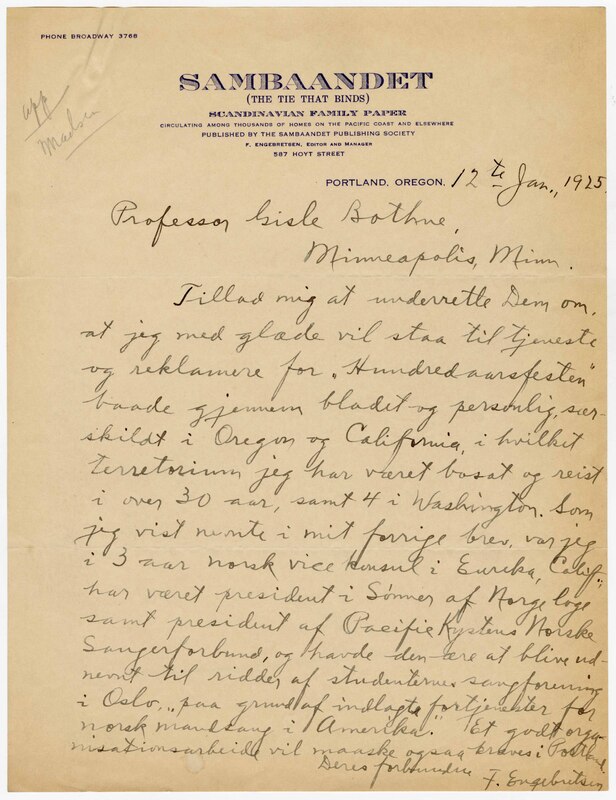 PHONE BROADWAY 3768
app
Madsen
SAMBAANDET
(THE TIE THAT BINDS)
SCANDINAVIAN FAMILY PAPER
CIRCULATING AMONG THOUSANDS OF HOMES ON THE PACIFIC COAST AND ELSEWHERE
PUBLISHED BY THE SAMBAANDET PUBLISHING SOCIETY
F. ENGEBRETSEN, EDITOR AND MANAGER
587 HOYT STREET
PORTLAND, OREGON, 12te Jan., 1925.
Professor Gisle Bothne,
Minneapolis, Minn.
Tillad mig at underrette Dem om,
at jeg med glæde vil staa til tjeneste
og reklamere for „Hundredaarsfesten"
baade gjennem bladet og personlig, sær-
skildt i Oregon og California, i hvilket
terretorium jeg har været bosat og reist
i over 30 aar, samt 4 i Washington. Som
jeg vist nevnte i mit forrige brev, var jeg
i 3 aar norsk vice konsul i Eureka, Calif.,
har været president i Sønner af Norge loge
samt president af Pacific Kystens Norske
Sangerforbund, og havde den ære at blive ud-
nevnt til ridder af studenternes sangforening
i Oslo, „paa grund af indlagte fortjenester for
norsk mandsang i Amerika". Et godt orga-
nisationsarbeide vil maaske ogsaa kræves i Portland.
Deres forbundne
F. Engebretsen